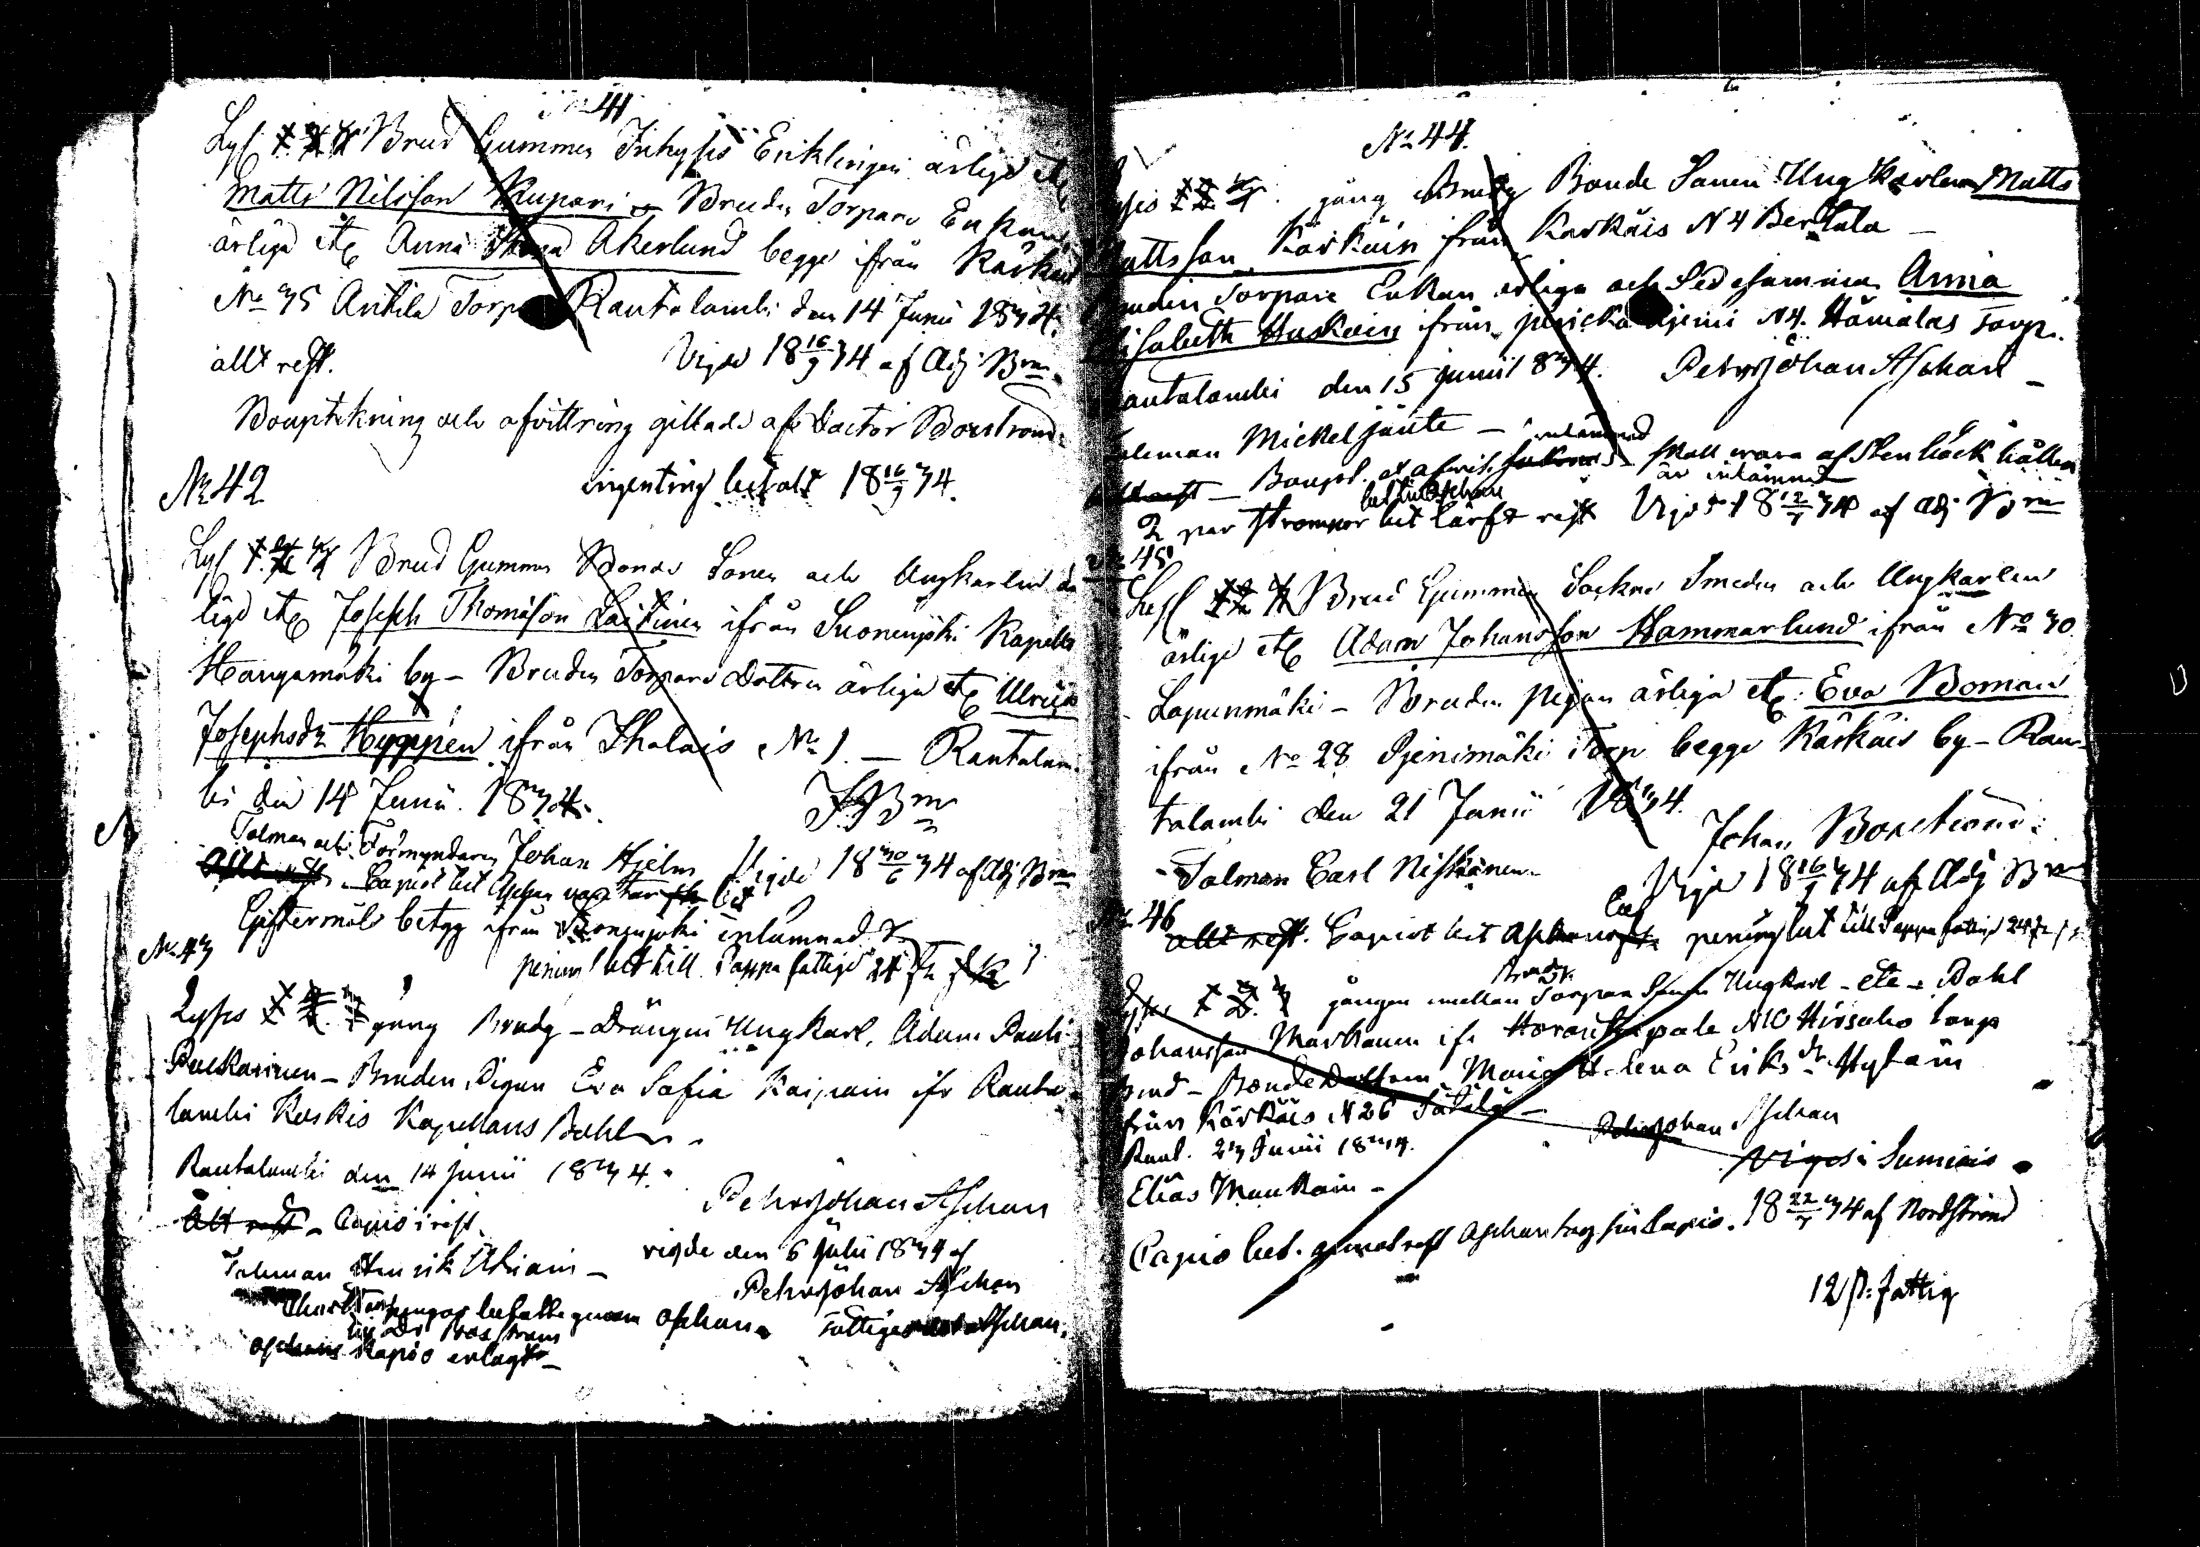 41
Lyst 1. 2. 3 Brud Gummen Inhyses Enklingen ärlige etc
Matts Nilsson Kupari – Bruden Torpare Enkan
ärliga etc Anna Åkerlund begge ifrån Kärkäis
No 35 Antila Torp Rautalambi den 14 Junii 1834.
allt rest. Vigde 18 16/7 34 af Adj. Brm
Bouptekning och afvittring gillade af Doctor Borström
ingenting betalt 18 16/7 34.
No 42
Lyst 1. 2. 3 Brud Gummen Bonde Sonen och Ungkarlen är
lige etc Joseph Thomasson Laitinen ifrån Suonenjoki Kapells
Hangamäki by – Bruden Torpare Dottren ärliga etc Ulrica
Josephsdr Hyppén ifrån Ihalais No 1. – Rautalam-
bi den 14 Junii 1834. J. Brm
Talman och Förmyndaren Johan Hjelm Vigde 18 30/6 34 af Adj Brm
Allt rest. Capiot bet Aschan
Giftermåls betyg ifrån Suonenjoki inlämnad
No 43
penning bet till Pappa fattige 24
Lyses 1 2 3 gång Brudg – Drängen Ungkarl. Adam Pauls
Puckarinen – Bruden Pigan Eva Safia Kaipain ifr Rauta
lambi Koskis Kapellans Bohl
Rautalambi den 14 junii 1834.
Pehrjohan Aschan
Alt rest – Capio i rest.
Talman Henrik Ahiain – vigde den 6 Julii 1834 af
Pehrjohan Aschan
betalte genom Aschan. Fattiges Aschan.
Aschans Kapio erlagt –
No 44.
Lyses 1 2 3. gång Brudg Bonde Sonen Ungkarlen Matts
Mattsson Kärkäin från Karkäis N 4 Bertala –
Bruden Torpare Enkan ärliga och Sedesamma Anna
Elisabeth Huskain ifrån N 4. Hämälas Torp.
Rautalambi den 15 junii 1834. Pehrjohan Aschan –
Talman Mickel Jänte – inlämnad
Boupt. skall vara af Stenbäck hållen
är inlämnad
2 par Strompor bet lärft rest Vigde 18 12/7 34 af Adj Brm
No 45
Lyst 1 2 3 Brud Gummen Sockne Smeden och Ungkarlen
ärlige etc Adam Johansson Hammarlund ifrån No 30
Lapunmäki – Bruden pigan ärliga etc. Eva Boman
ifrån No 28 Pjenimäki Torp begge Kärkäis by – Rau-
talambi den 21 Junii 1834.
Johan Borström
Talman Carl Niskanen Vigde 18 16/7 34 af Adj Brm
No 46
allt rest. Capiot bet penning bet till Pappa fattige 24
Brudg.
Lyses 1 2. 3 gången mellan Torpar Sonen Ungkarl – etc – Dahl
Johansson Markanen ifr Horonkapale N 10 Hirsaho torp
brud – Bonde Dottren Maria Helena Eriks dr Hytäin
från Kärkäis N 26 –
Raut. 23 Junii 1834. Pehrjohan Aschan
Elias Maukain – Viges i Sumiais
Capio bet. Aschan tog sin Capio. 18 22/7 34 af Nordström
12 s. fattig